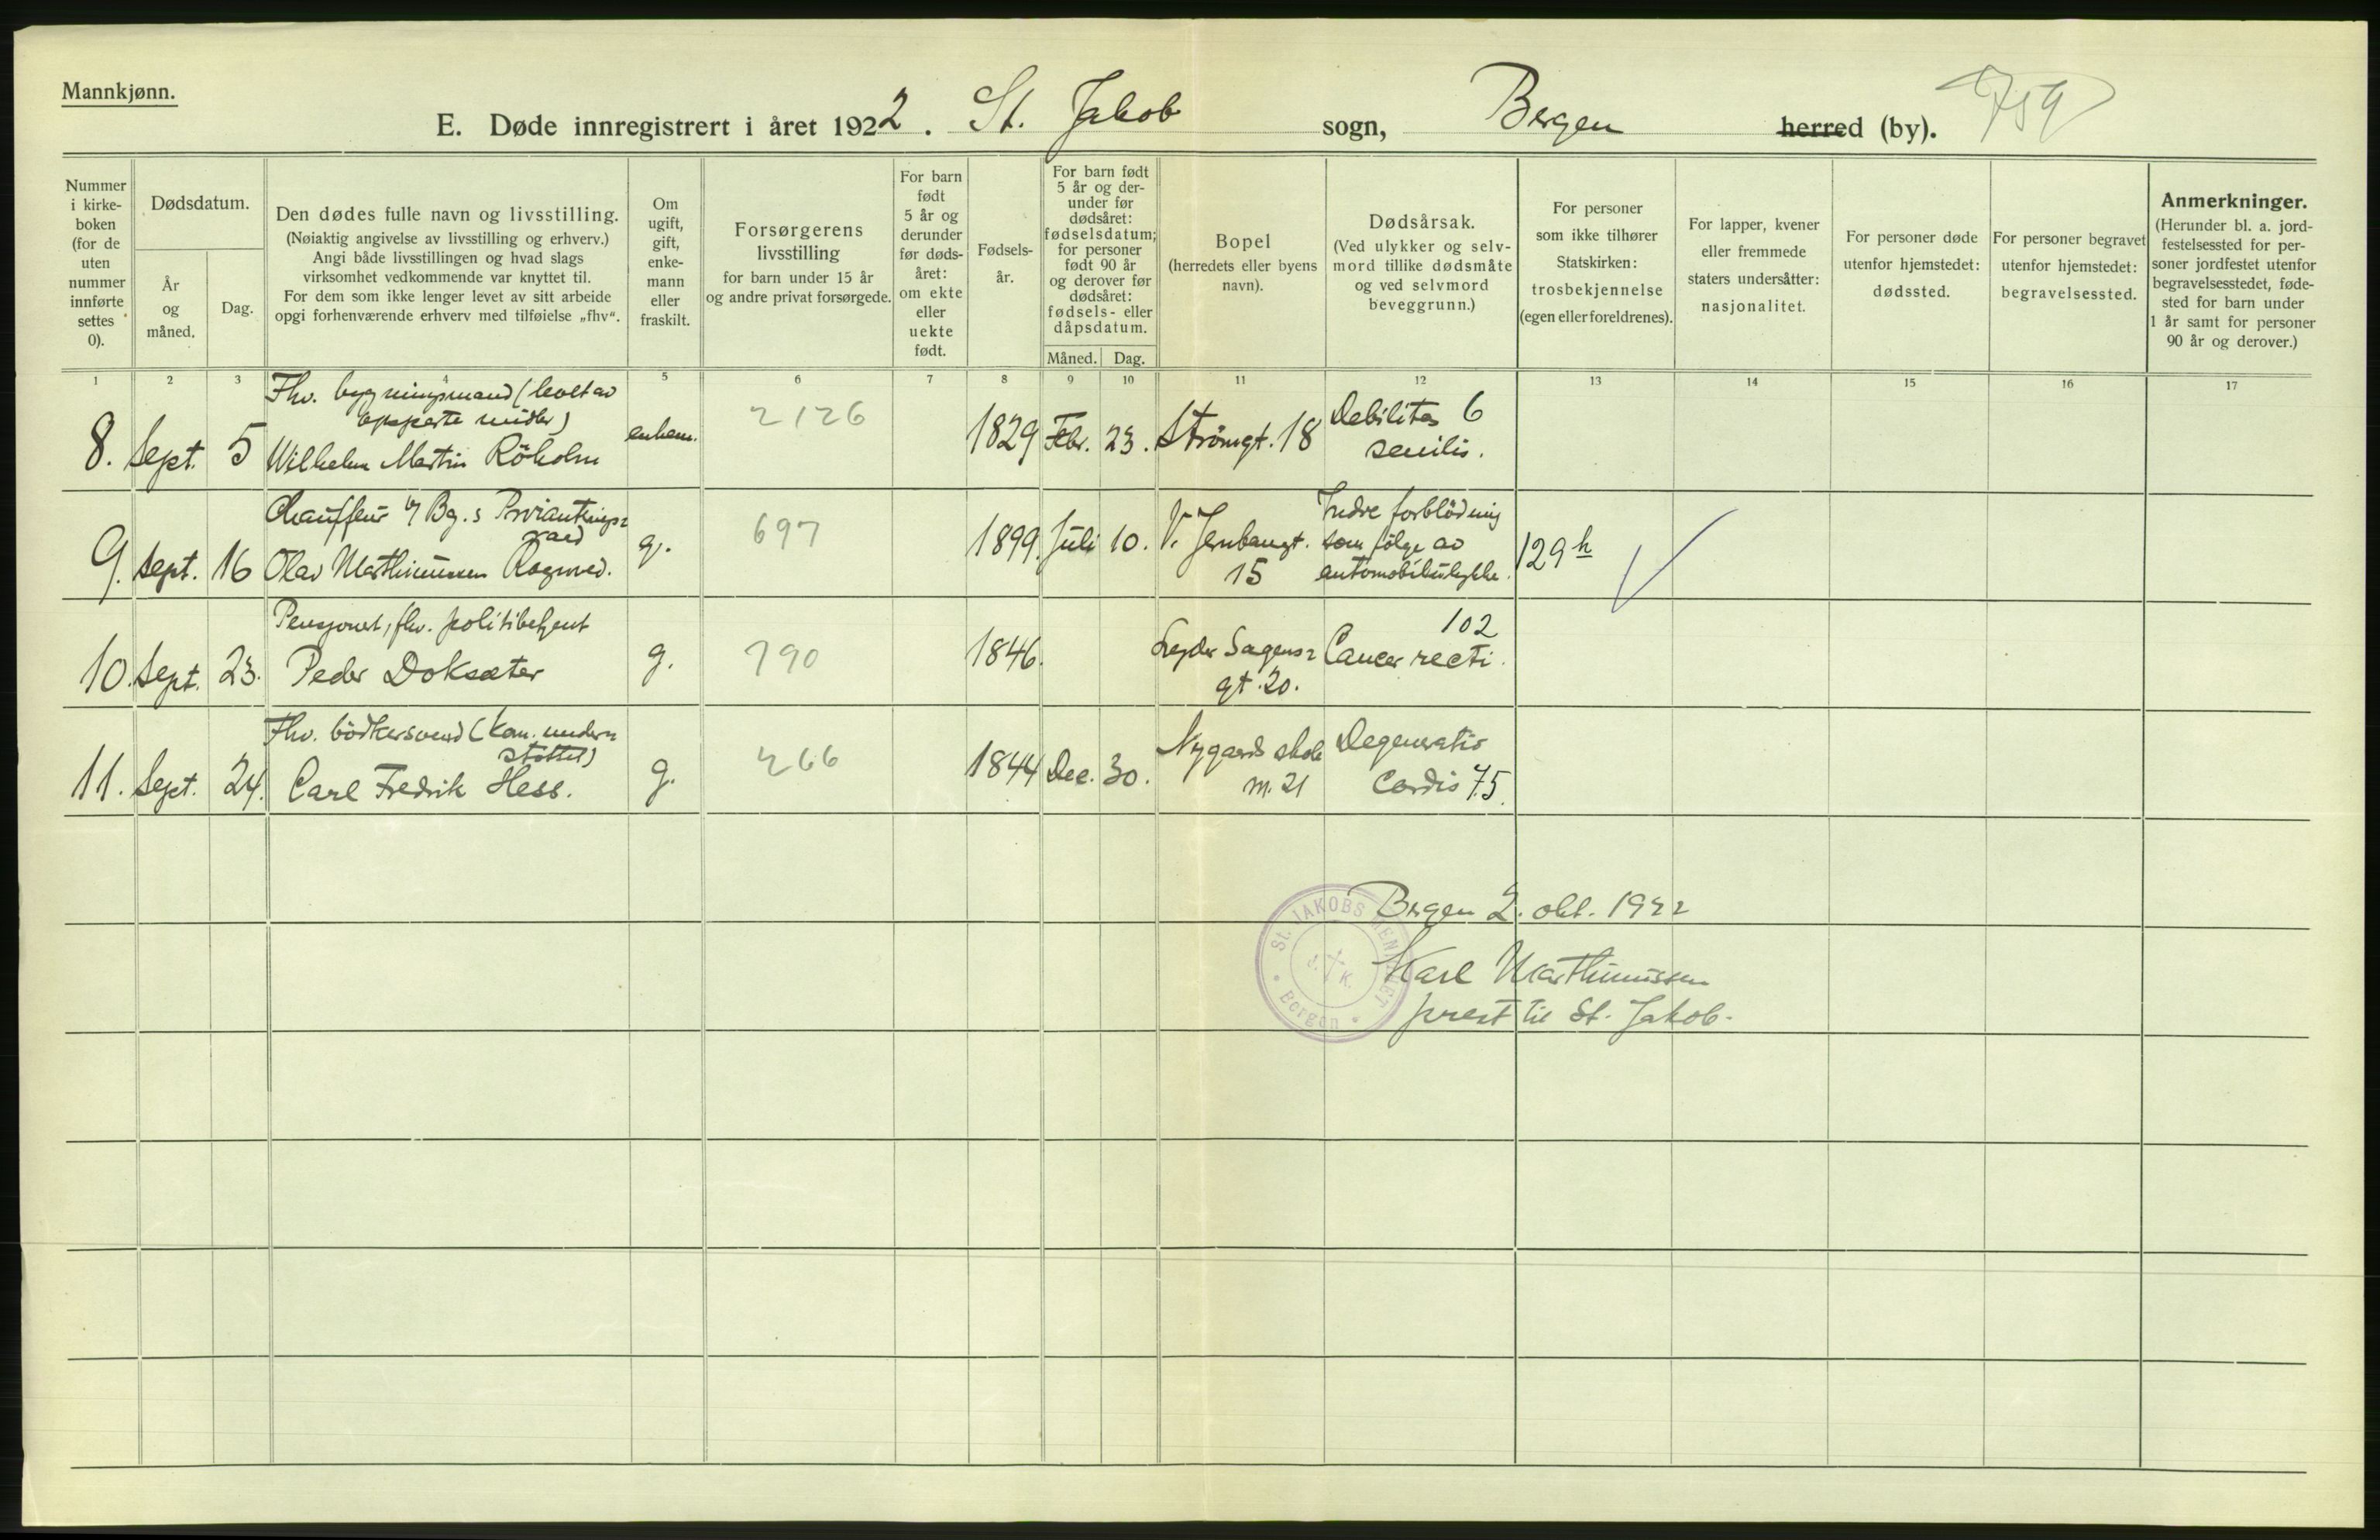 Mannkjønn.
E. Døde innregistrert i året 1922. St. Jakob sogn, Bergen herred (by). 759
Nummer i kirkeboken (for de uten nummer innførte settes 0).
Dødsdatum.
År og måned.
Dag.
Den dødes fulle navn og livsstilling.
(Nøiaktig angivelse av livsstilling og erhverv.)
Angi både livsstillingen og hvad slags
virksomhet vedkommende var knyttet til.
For dem som ikke lenger levet av sitt arbeide
opgi forhenværende erhverv med tilføielse „fhv“.
Om ugift, gift, enkemann eller fraskilt.
Forsørgerens livsstilling
for barn under 15 år
og andre privat forsørgede.
For barn født 5 år og derunder før dødsåret: om ekte eller uekte født.
Fødselsår.
For barn født 5 år og derunder før dødsåret: fødselsdatum; for personer født 90 år og derover før dødsåret: fødsels- eller dåpsdatum.
Måned. Dag.
Bopel
(herredets eller byens navn).
Dødsårsak.
(Ved ulykker og selvmord tillike dødsmåte og ved selvmord beveggrunn.)
For personer som ikke tilhører Statskirken: trosbekjennelse (egen eller foreldrenes).
For lapper, kvener eller fremmede staters undersåtter: nasjonalitet.
For personer døde utenfor hjemstedet: dødssted.
For personer begravet utenfor hjemstedet: begravelsessted.
Anmerkninger.
(Herunder bl. a. jordfestelsessted for personer jordfestet utenfor begravelsesstedet, fødested for barn under 1 år samt for personer 90 år og derover.)
1 2 3 4 5 6 7 8 9 10 11 12 13 14 15 16 17
Fhv. bygningsmand (levet av
opsparte midler)
8. Sept. 5 Wilhelm Martin Röholm enkem. 2126 1829 Febr. 23. Strömgt. 18 Debilitas 6
senilis.
Chauffeur v/ Bg.s Proviantrings-
raad
9. Sept. 16 Olav Marthinussen g. 697 1899. Juli 10. V. Jernbanegt. 15
Indre forblödning
som fölge av
automobilulykke. 129 h
Pensjonert, fhv. politibetjent
10. Sept. 23. Peder Doksæter g. 790 1846. Lyder Sagens-
gt. 20.
102
Cancer recti.
Fhv. bödkersvend (kom. under-
støttet)
11. Sept. 24. Carl Fredrik Hess. g. 266 1844 Dec. 30. Nygaards skole
m. 21
Degeneratio
Cordis 75.
Bergen 2. okt. 1922
Karl Marthinussen
prest til St. Jakob.
St. JAKOBS MENIGHET
J. K.
Bergen